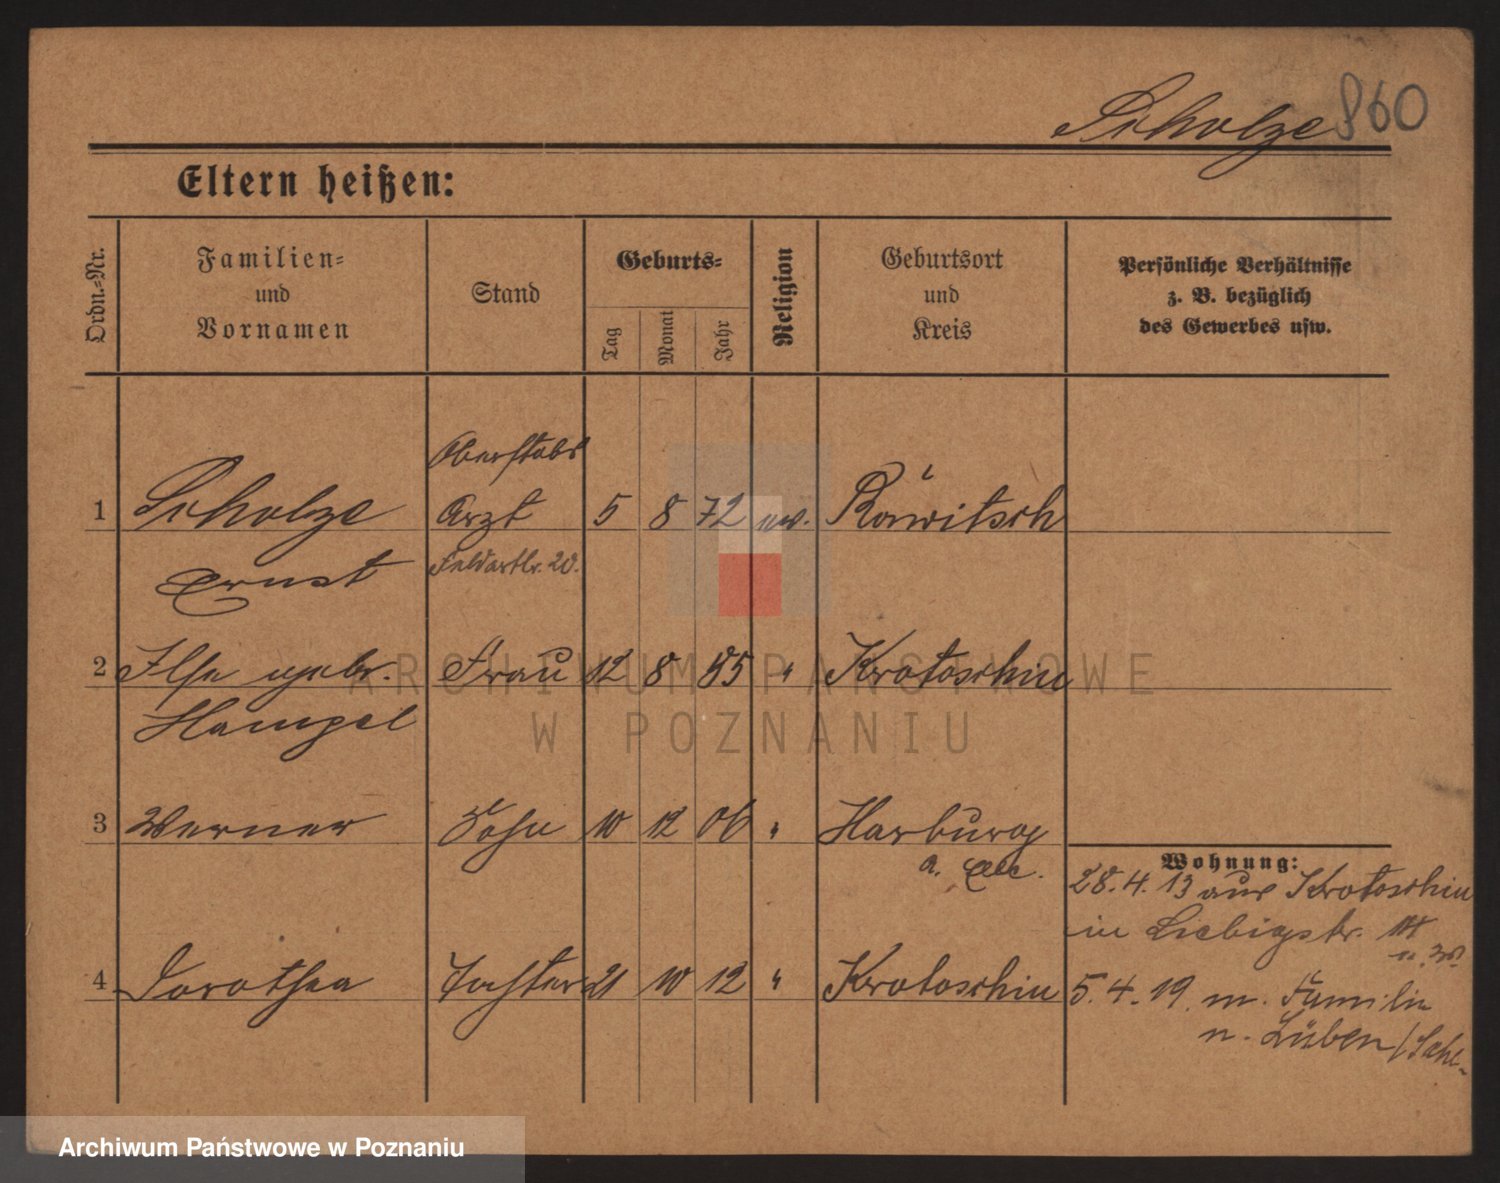 Scholze 860
Eltern heißen:
Ordn.-Nr.
Familien-
und
Vornamen
Stand
Geburts-
Tag
Monat
Jahr
Religion
Geburtsort
und
Kreis
Persönliche Verhältnisse
z. B. bezüglich
des Gewerbes usw.
Oberstabs
1 Scholze Arzt 5 8 72 ev. Rawitsch
Ernst Feldartlr. 20.
2 Ilse geb. Frau 12 8 85 " Krotoschin
Hampel
3 Werner Sohn 10 12 06 " Harburg
a. Elbe.
Wohnung:
28.4.13 aus Krotoschin
in Liebigstr.
4 Dorothea Tochter 21 10 12 " Krotoschin
5.4.19. m. Familie
n. Lüben /Schl.
ARCHIWUM PAŃSTWOWE
W POZNANIU
Archiwum Państwowe w Poznaniu